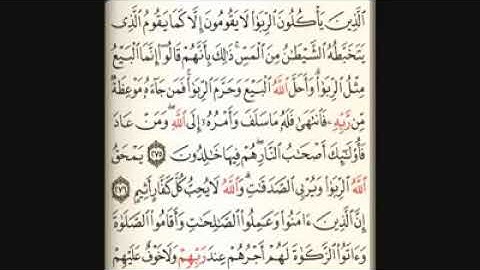 ٱلَّذِينَ يَأْكُلُونَ ٱلرِّبَوٰا۟ لَا يَقُومُونَ إِلَّا كَمَا يَقُومُ ٱلَّذِى
يَتَخَبَّطُهُ ٱلشَّيْطَٰنُ مِنَ ٱلْمَسِّ ۚ ذَٰلِكَ بِأَنَّهُمْ قَالُوٓا۟ إِنَّمَا ٱلْبَيْعُ
مِثْلُ ٱلرِّبَوٰا۟ ۗ وَأَحَلَّ ٱللَّهُ ٱلْبَيْعَ وَحَرَّمَ ٱلرِّبَوٰا۟ ۚ فَمَن جَآءَهُۥ مَوْعِظَةٌ
مِّن رَّبِّهِۦ فَٱنتَهَىٰ فَلَهُۥ مَا سَلَفَ وَأَمْرُهُۥٓ إِلَى ٱللَّهِ ۖ وَمَنْ عَادَ
فَأُو۟لَٰٓئِكَ أَصْحَٰبُ ٱلنَّارِ ۖ هُمْ فِيهَا خَٰلِدُونَ ٢٧٥ يَمْحَقُ
ٱللَّهُ ٱلرِّبَوٰا۟ وَيُرْبِى ٱلصَّدَقَٰتِ ۗ وَٱللَّهُ لَا يُحِبُّ كُلَّ كَفَّارٍ أَثِيمٍ ٢٧٦
إِنَّ ٱلَّذِينَ ءَامَنُوا۟ وَعَمِلُوا۟ ٱلصَّٰلِحَٰتِ وَأَقَامُوا۟ ٱلصَّلَوٰةَ
وَءَاتَوُا۟ ٱلزَّكَوٰةَ لَهُمْ أَجْرُهُمْ عِندَ رَبِّهِمْ وَلَا خَوْفٌ عَلَيْهِمْ